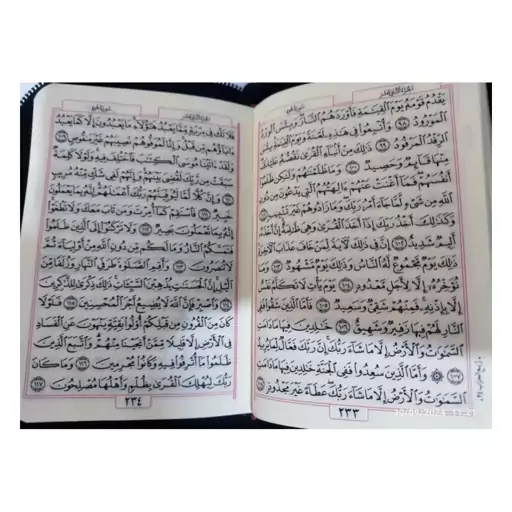 الجزء الثاني عشر
سورة هود
يَقْدُمُ قَوْمَهُ يَوْمَ الْقِيَٰمَةِ فَأَوْرَدَهُمُ النَّارَ وَبِئْسَ الْوِرْدُ
الْمَوْرُودُ ٩٨ وَأُتْبِعُوا فِي هَٰذِهِ لَعْنَةً وَيَوْمَ الْقِيَٰمَةِ بِئْسَ
الرِّفْدُ الْمَرْفُودُ ٩٩ ذَٰلِكَ مِنْ أَنْبَاءِ الْقُرَىٰ نَقُصُّهُ عَلَيْكَ
مِنْهَا قَائِمٌ وَحَصِيدٌ ١٠٠ وَمَا ظَلَمْنَٰهُمْ وَلَٰكِنْ ظَلَمُوا
أَنْفُسَهُمْ فَمَا أَغْنَتْ عَنْهُمْ ءَالِهَتُهُمُ الَّتِي يَدْعُونَ مِنْ دُونِ
اللَّهِ مِنْ شَيْءٍ لَمَّا جَاءَ أَمْرُ رَبِّكَ وَمَا زَادُوهُمْ غَيْرَ تَتْبِيبٍ ١٠١
وَكَذَٰلِكَ أَخْذُ رَبِّكَ إِذَا أَخَذَ الْقُرَىٰ وَهِيَ ظَٰلِمَةٌ إِنَّ أَخْذَهُ
أَلِيمٌ شَدِيدٌ ١٠٢ إِنَّ فِي ذَٰلِكَ لَءَايَةً لِمَنْ خَافَ عَذَابَ الْءَاخِرَةِ
ذَٰلِكَ يَوْمٌ مَجْمُوعٌ لَهُ النَّاسُ وَذَٰلِكَ يَوْمٌ مَشْهُودٌ ١٠٣ وَمَا
نُؤَخِّرُهُ إِلَّا لِأَجَلٍ مَعْدُودٍ ١٠٤ يَوْمَ يَأْتِ لَا تَكَلَّمُ نَفْسٌ
إِلَّا بِإِذْنِهِ فَمِنْهُمْ شَقِيٌّ وَسَعِيدٌ ١٠٥ فَأَمَّا الَّذِينَ شَقُوا فَفِي
النَّارِ لَهُمْ فِيهَا زَفِيرٌ وَشَهِيقٌ ١٠٦ خَٰلِدِينَ فِيهَا مَا دَامَتِ
السَّمَٰوَٰتُ وَالْأَرْضُ إِلَّا مَا شَاءَ رَبُّكَ إِنَّ رَبَّكَ فَعَّالٌ لِمَا يُرِيدُ
١٠٧ وَأَمَّا الَّذِينَ سُعِدُوا فَفِي الْجَنَّةِ خَٰلِدِينَ فِيهَا مَا دَامَتِ
السَّمَٰوَٰتُ وَالْأَرْضُ إِلَّا مَا شَاءَ رَبُّكَ عَطَاءً غَيْرَ مَجْذُوذٍ ١٠٨
٢٣٣
الجزء الثاني عشر
سورة هود
فَلَا تَكُ فِي مِرْيَةٍ مِمَّا يَعْبُدُ هَٰؤُلَاءِ مَا يَعْبُدُونَ إِلَّا كَمَا يَعْبُدُ
ءَابَاؤُهُمْ مِنْ قَبْلُ وَإِنَّا لَمُوَفُّوهُمْ نَصِيبَهُمْ غَيْرَ مَنْقُوصٍ ١٠٩
وَلَقَدْ ءَاتَيْنَا مُوسَى الْكِتَٰبَ فَاخْتُلِفَ فِيهِ وَلَوْلَا كَلِمَةٌ
سَبَقَتْ مِنْ رَبِّكَ لَقُضِيَ بَيْنَهُمْ وَإِنَّهُمْ لَفِي شَكٍّ مِنْهُ مُرِيبٍ
١١٠ وَإِنَّ كُلًّا لَمَّا لَيُوَفِّيَنَّهُمْ رَبُّكَ أَعْمَٰلَهُمْ إِنَّهُ بِمَا يَعْمَلُونَ
خَبِيرٌ ١١١ فَاسْتَقِمْ كَمَا أُمِرْتَ وَمَنْ تَابَ مَعَكَ وَلَا تَطْغَوْا
إِنَّهُ بِمَا تَعْمَلُونَ بَصِيرٌ ١١٢ وَلَا تَرْكَنُوا إِلَى الَّذِينَ ظَلَمُوا
فَتَمَسَّكُمُ النَّارُ وَمَا لَكُمْ مِنْ دُونِ اللَّهِ مِنْ أَوْلِيَاءَ ثُمَّ
لَا تُنْصَرُونَ ١١٣ وَأَقِمِ الصَّلَوٰةَ طَرَفَيِ النَّهَارِ وَزُلَفًا مِنَ
الَّيْلِ إِنَّ الْحَسَنَٰتِ يُذْهِبْنَ السَّيِّئَاتِ ذَٰلِكَ ذِكْرَىٰ لِلذَّٰكِرِينَ
١١٤ وَاصْبِرْ فَإِنَّ اللَّهَ لَا يُضِيعُ أَجْرَ الْمُحْسِنِينَ ١١٥ فَلَوْلَا
كَانَ مِنَ الْقُرُونِ مِنْ قَبْلِكُمْ أُولُوا بَقِيَّةٍ يَنْهَوْنَ عَنِ الْفَسَادِ
فِي الْأَرْضِ إِلَّا قَلِيلًا مِمَّنْ أَنْجَيْنَا مِنْهُمْ وَاتَّبَعَ الَّذِينَ
ظَلَمُوا مَا أُتْرِفُوا فِيهِ وَكَانُوا مُجْرِمِينَ ١١٦ وَمَا كَانَ
رَبُّكَ لِيُهْلِكَ الْقُرَىٰ بِظُلْمٍ وَأَهْلُهَا مُصْلِحُونَ ١١٧
٢٣٤